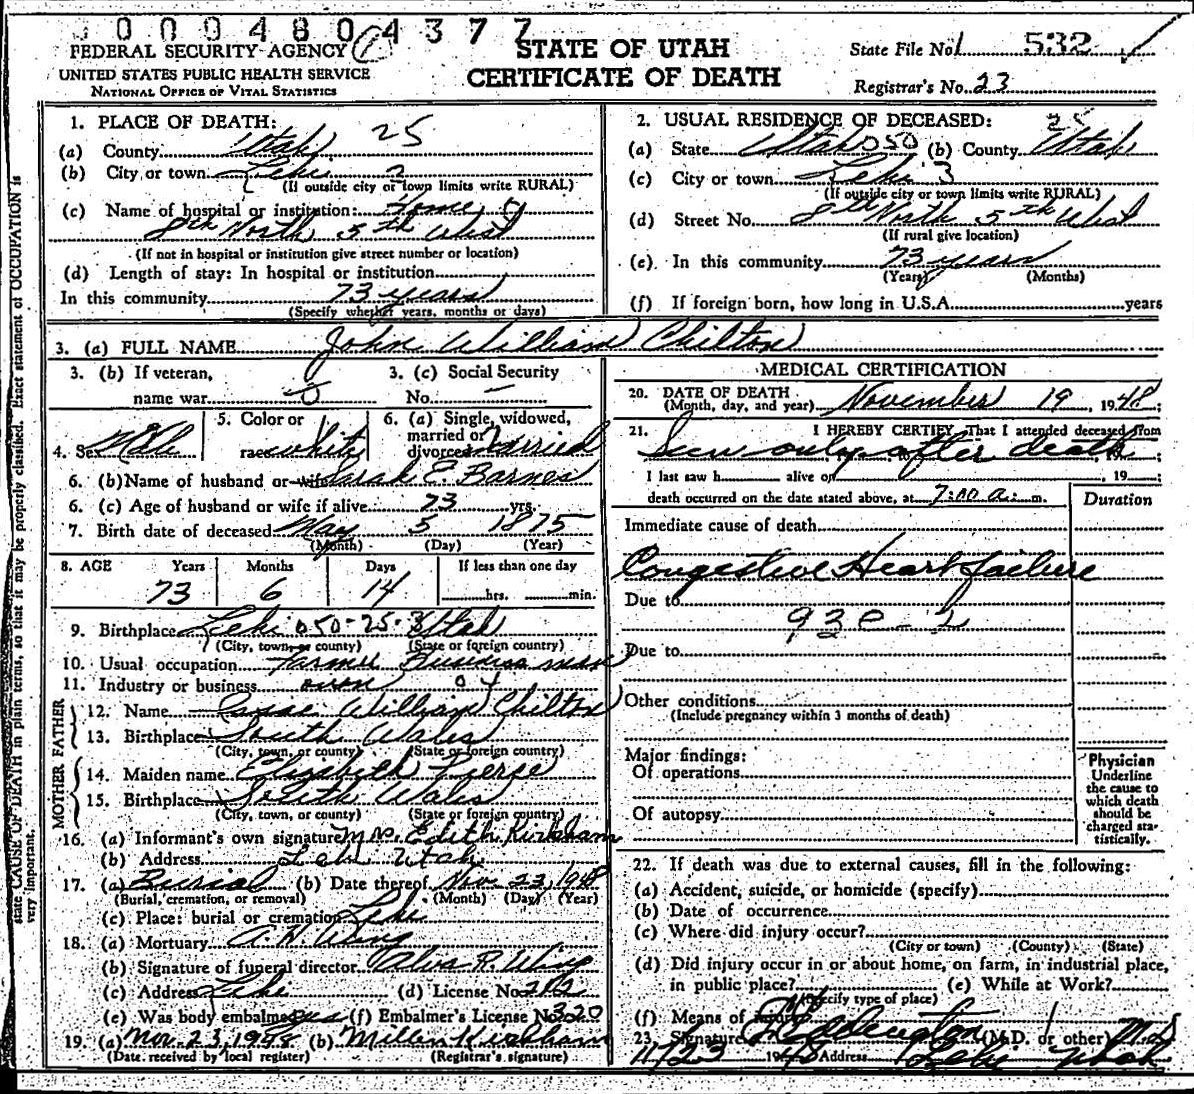 0004804377
FEDERAL SECURITY AGENCY
UNITED STATES PUBLIC HEALTH SERVICE
NATIONAL OFFICE OF VITAL STATISTICS
STATE OF UTAH
CERTIFICATE OF DEATH
State File No. 532
Registrar's No. 23
state CAUSE OF DEATH in plain terms, so that it may be properly classified. Exact statement of OCCUPATION is
very important.
1. PLACE OF DEATH: 25
(a) County Utah
(b) City or town Lehi 2
(If outside city or town limits write RURAL)
(c) Name of hospital or institution: Home
8th North 5th West
(If not in hospital or institution give street number or location)
(d) Length of stay: In hospital or institution
In this community 73 years
(Specify whether years, months or days)
2. USUAL RESIDENCE OF DECEASED: 25
(a) State Utah 050 (b) County Utah
(c) City or town Lehi 3
(If outside city or town limits write RURAL)
(d) Street No. 8th North 5th West
(If rural give location)
(e) In this community 73 years
(Years) (Months)
(f) If foreign born, how long in U.S.A. years
3. (a) FULL NAME John William Chilton
3. (b) If veteran,
name war 0
3. (c) Social Security
No. —
4. Sex Male
5. Color or
race white
6. (a) Single, widowed,
married or
divorced Married
6. (b) Name of husband or wife Sarah E. Barnes
6. (c) Age of husband or wife if alive 73 yrs.
7. Birth date of deceased May 5 1875
(Month) (Day) (Year)
8. AGE Years Months Days If less than one day
73 6 14 hrs. min.
9. Birthplace Lehi 050-25-3 Utah
(City, town, or county) (State or foreign country)
10. Usual occupation Farmer Business man
11. Industry or business own
FATHER
12. Name Isaac William Chilton
13. Birthplace South Wales
(City, town, or county) (State or foreign country)
MOTHER
14. Maiden name Elizabeth Pierse
15. Birthplace South Wales
(City, town, or county) (State or foreign country)
16. (a) Informant's own signature Mrs. Edith Kirkham
(b) Address Lehi Utah
17. (a) Burial (b) Date thereof Nov. 23, 1948
(Burial, cremation, or removal) (Month) (Day) (Year)
(c) Place: burial or cremation Lehi
18. (a) Mortuary A. H. Wing
(b) Signature of funeral director Elva R. Wing
(c) Address Lehi (d) License No. 202
(e) Was body embalmed yes (f) Embalmer's License No. 320
19. (a) Nov. 23, 1948 (b) Millen Kirkham
(Date received by local register) (Registrar's signature)
MEDICAL CERTIFICATION
20. DATE OF DEATH
(Month, day, and year) November 19, 1948;
21. I HEREBY CERTIFY, That I attended deceased from
Seen only after death
I last saw h alive on 19
death occurred on the date stated above, at 7:00 a. m.
Duration
Immediate cause of death
Congestive Heart failure
Due to
93e-2
Due to
Other conditions
(Include pregnancy within 3 months of death)
Major findings:
Of operations
Of autopsy
Physician
Underline
the cause to
which death
should be
charged sta-
tistically.
22. If death was due to external causes, fill in the following:
(a) Accident, suicide, or homicide (specify)
(b) Date of occurrence
(c) Where did injury occur?
(City or town) (County) (State)
(d) Did injury occur in or about home, on farm, in industrial place,
in public place? (e) While at Work?
(Specify type of place)
(f) Means of injury
23. Signature Eddington (M.D. or other) M.D
11/23 1948 Address Lehi Utah